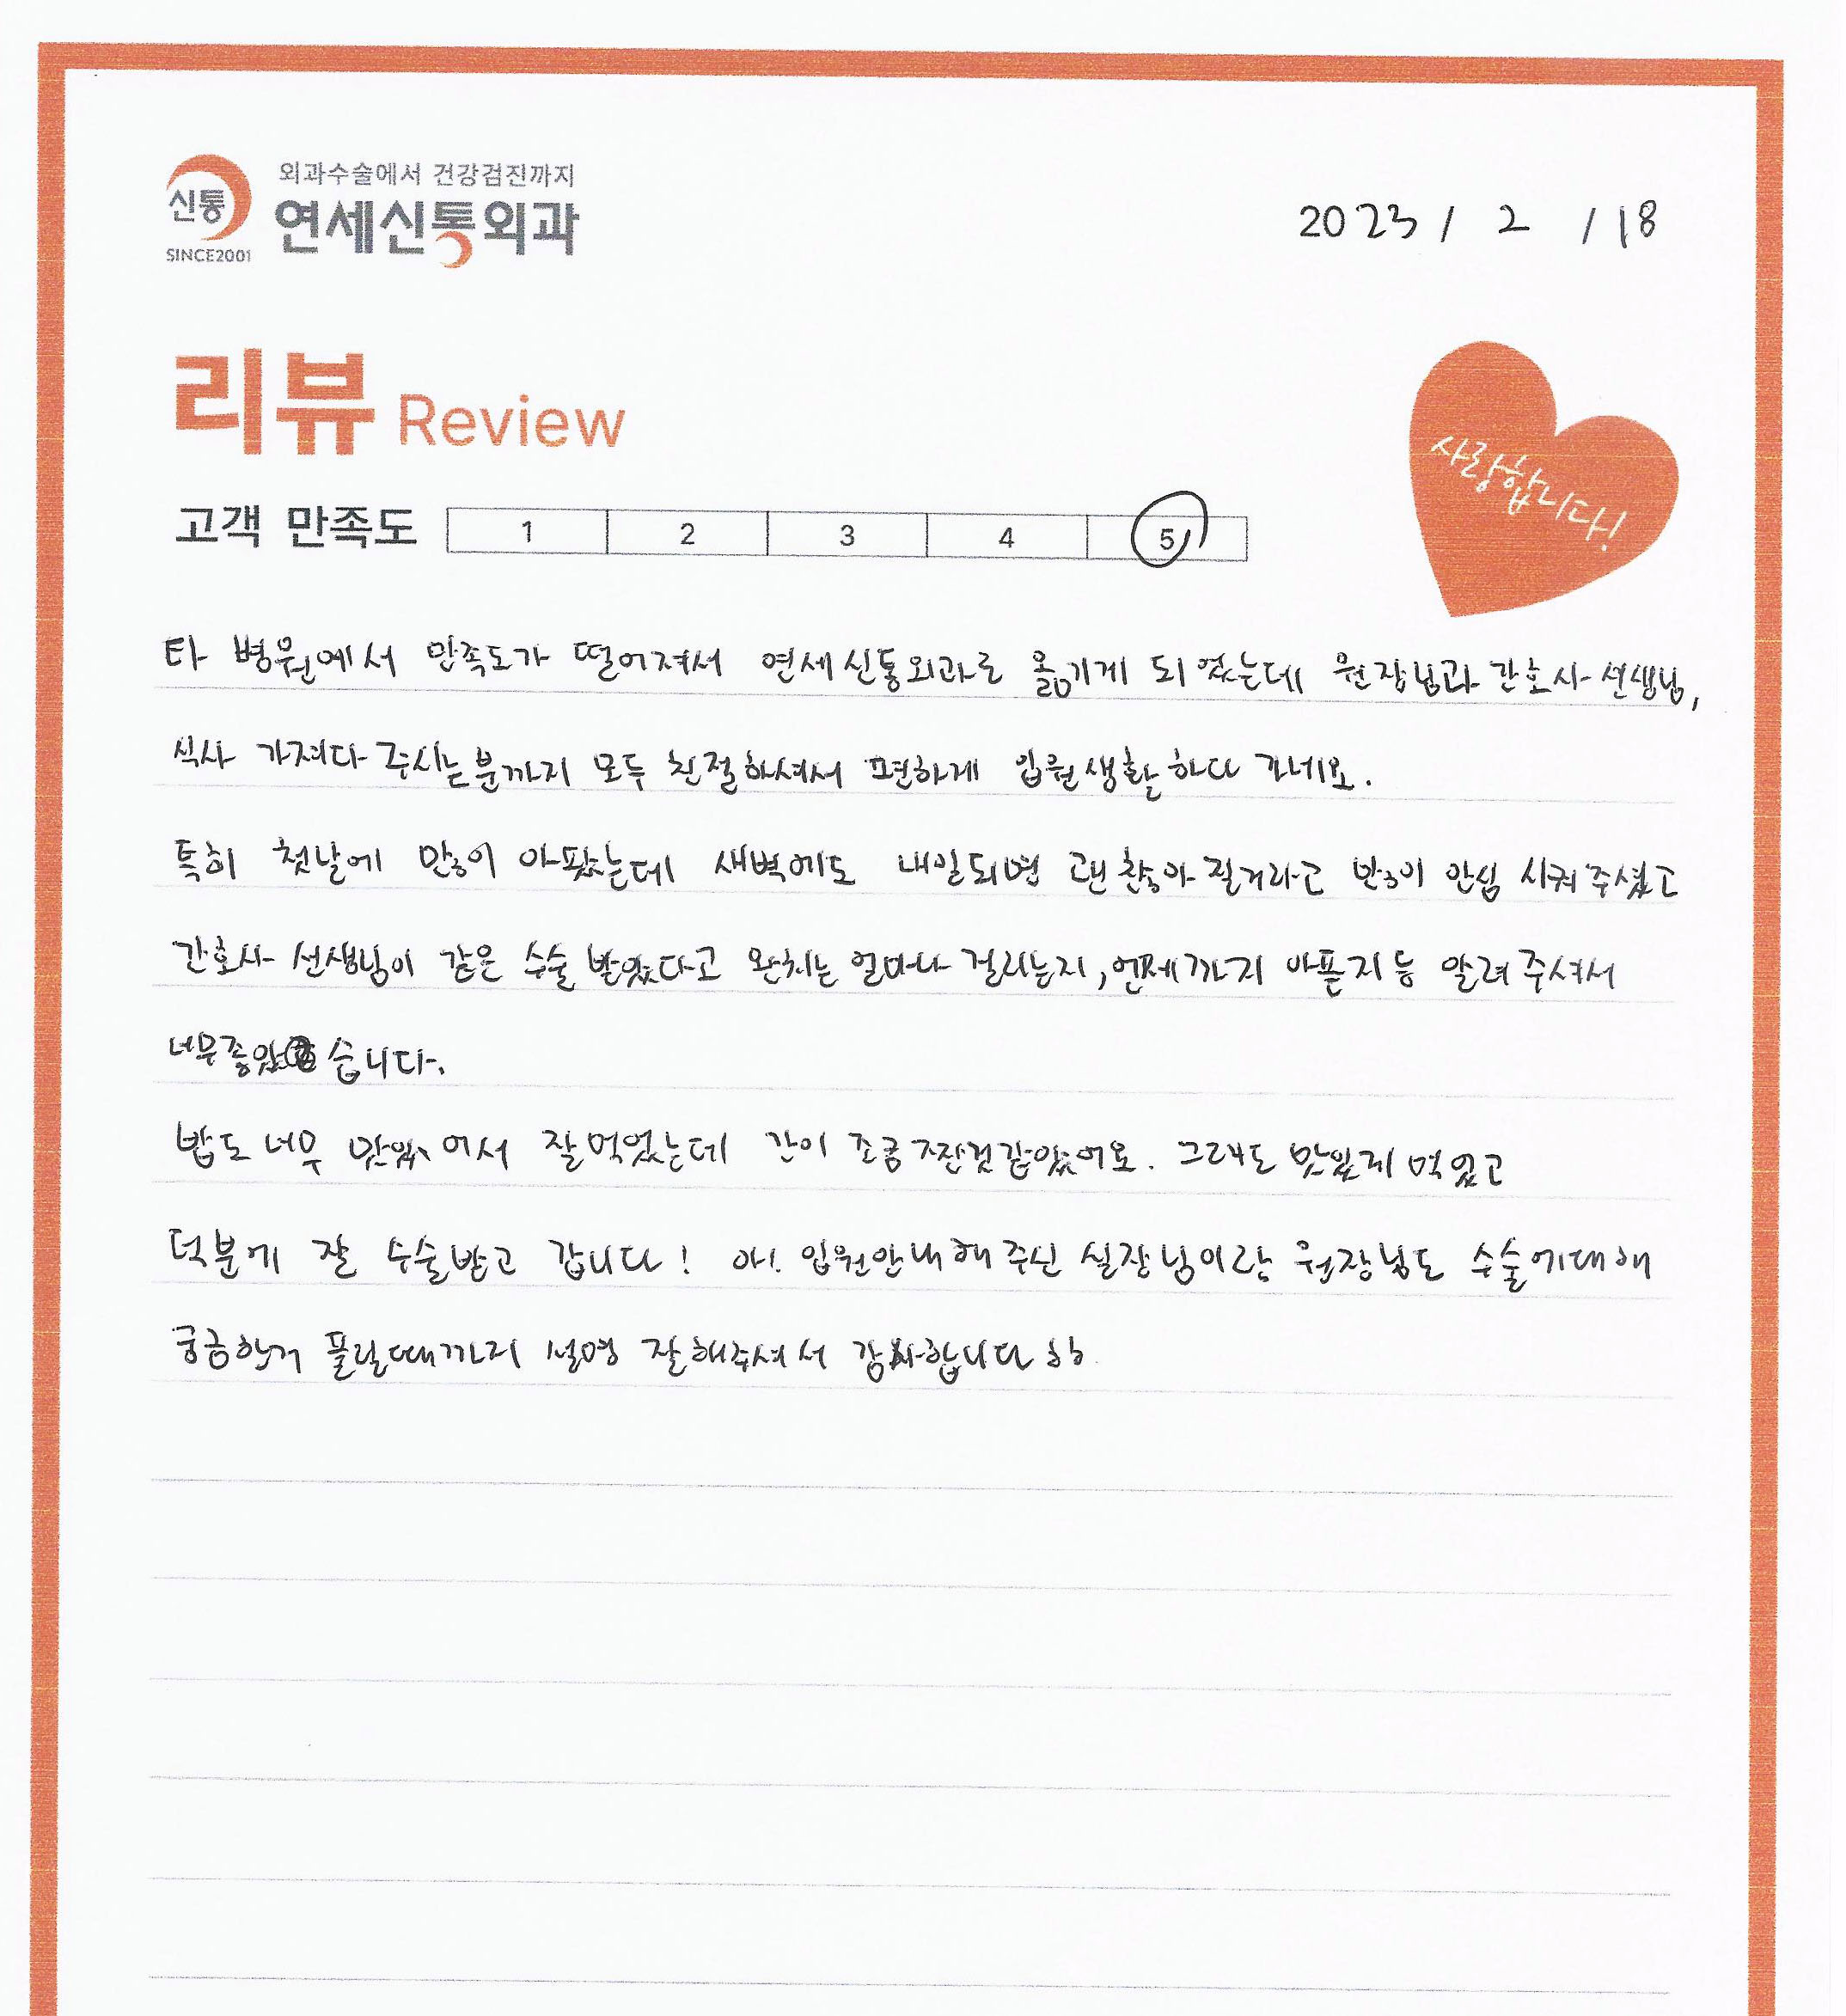 신통
SINCE2001
외과수술에서 건강검진까지
연세신통외과
2023 / 2 / 18
리뷰 Review
사랑합니다!
고객 만족도 1 2 3 4 5
타 병원에서 만족도가 떨어져서 연세신통외과로 옮기게 되었는데 원장님과 간호사 선생님,
식사 가져다 주시는분까지 모두 친절하셔서 편하게 입원생활하다 가네요.
특히 첫날에 많이 아팠는데 새벽에도 내일되면 괜찮아 질거라고 많이 안심 시켜주셨고
간호사 선생님이 같은 수술 받았다고 완치는 얼마나 걸리는지, 언제까지 아픈지 등 알려 주셔서
너무좋았습니다.
밥도 너무 맛있어서 잘먹었는데 간이 조금 짠것같았어요. 그래도 맛있게 먹었고
덕분에 잘 수술받고 갑니다! 아! 입원안내해주신 실장님이랑 원장님도 수술에대해
궁금한거 풀릴때까지 설명 잘해주셔서 감사합니다 ㅎㅎ